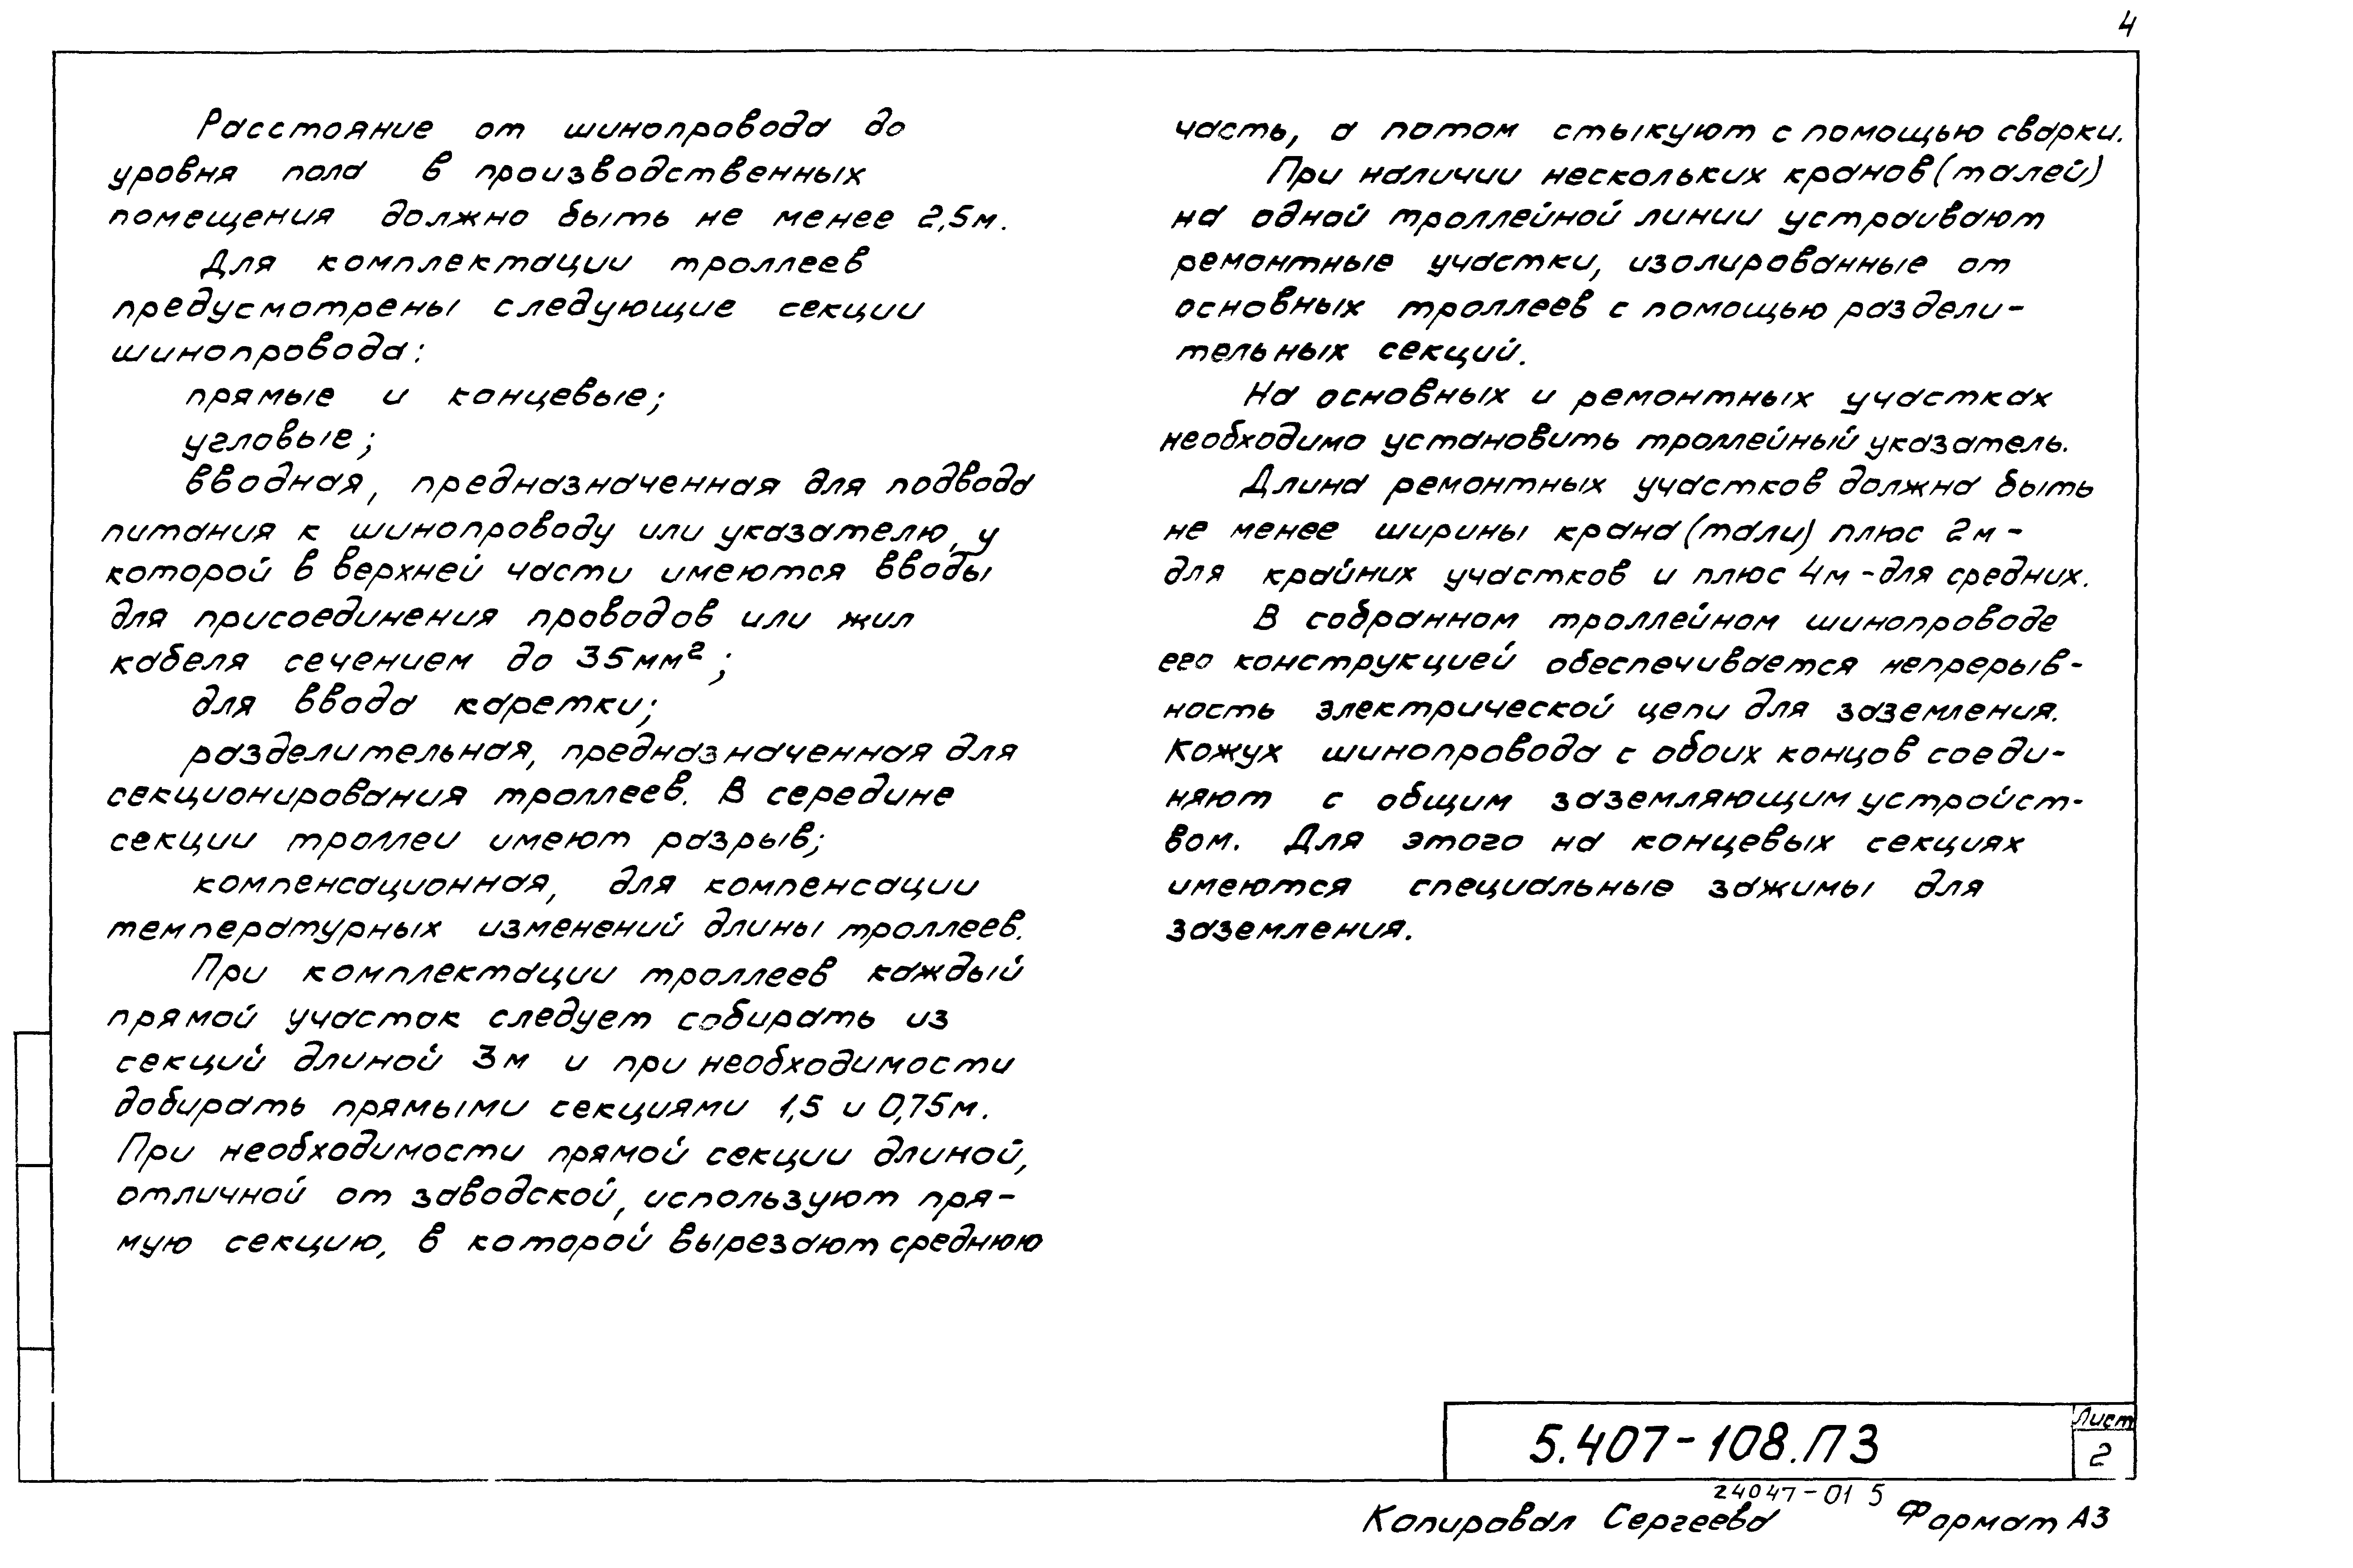 4
Расстояние от шинопровода до
уровня пола в производственных
помещения должно быть не менее 2,5м.
Для комплектации троллеев
предусмотрены следующие секции
шинопровода:
прямые и концевые;
угловые;
вводная, предназначенная для подвода
питания к шинопроводу или указателю, у
которой в верхней части имеются вводы
для присоединения проводов или жил
кабеля сечением до 35мм²;
для ввода каретки;
разделительная, предназначенная для
секционирования троллеев. В середине
секции троллеи имеют разрыв;
компенсационная, для компенсации
температурных изменений длины троллеев.
При комплектации троллеев каждый
прямой участок следует собирать из
секций длиной 3м и при необходимости
добирать прямыми секциями 1,5 и 0,75м.
При необходимости прямой секции длиной,
отличной от заводской, используют пря-
мую секцию, в которой вырезают среднюю
часть, а потом стыкуют с помощью сварки.
При наличии нескольких кранов (талей)
на одной троллейной линии устраивают
ремонтные участки, изолированные от
основных троллеев с помощью раздели-
тельных секций.
На основных и ремонтных участках
необходимо установить троллейный указатель.
Длина ремонтных участков должна быть
не менее ширины крана (тали) плюс 2м -
для крайних участков и плюс 4м - для средних.
В собранном троллейном шинопроводе
его конструкцией обеспечивается непрерыв-
ность электрической цепи для заземления.
Кожух шинопровода с обоих концов соеди-
няют с общим заземляющим устройст-
вом. Для этого на концевых секциях
имеются специальные зажимы для
заземления.
5.407-108.ПЗ
Лист
2
24047-01 5
Копировал Сергеева Формат А3